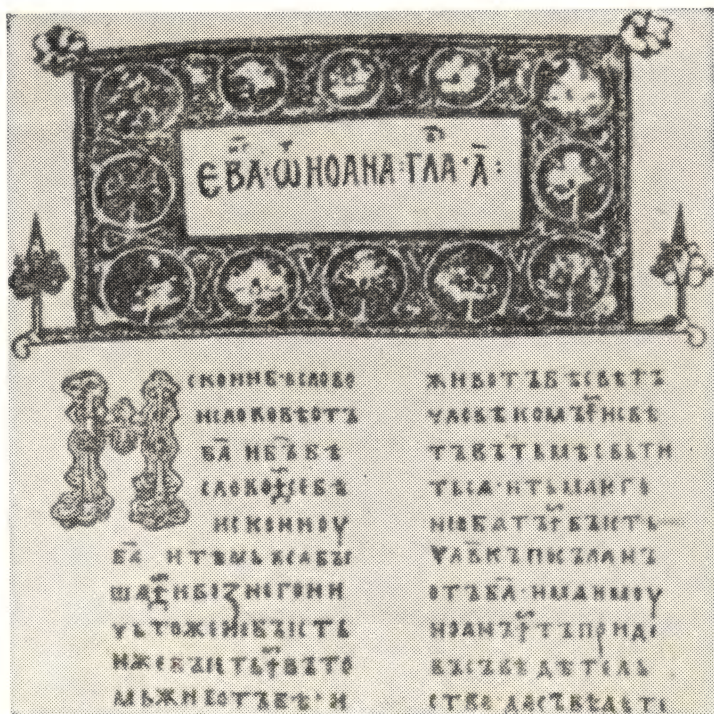 ЄВА·Ѿ ИОАНА·ГЛА·А҃:
СКОНИБѢСЛОВО
ИСЛОВОБѢОТЪ
Б҃А ИБ҃ЪБѢ
СЛОВО СЕБѢ
ИСКОНИОУ
Б҃А ИТѢМЬВСАБЫ
ША ИБЕЗНЕГОНИ
ЧЬТОЖЕНЕБЫСТЬ
ИЖЕБЫСТЬ ВЪТО
МЬЖИВОТЪБѢ·И
ЖИВОТЪБѢСВѢТЪ
ЧЛОВѢКОМЪ ИСВѢ
ТЪВЪТЬМѢСВЬТИ
ТЬСА·ИТЬМАЕГО
НЕОБАТЪ БЫСТЬ
ЧЛ҃ВКЪПОСЪЛАНЪ
ОТЪБ҃А·ИМАИМОУ
ИОАНЪ ТЪПРИДЕ
ВЪСЪВѢДѢТЕЛЬ
СТВО ДАСЪВѢДѢТЕ